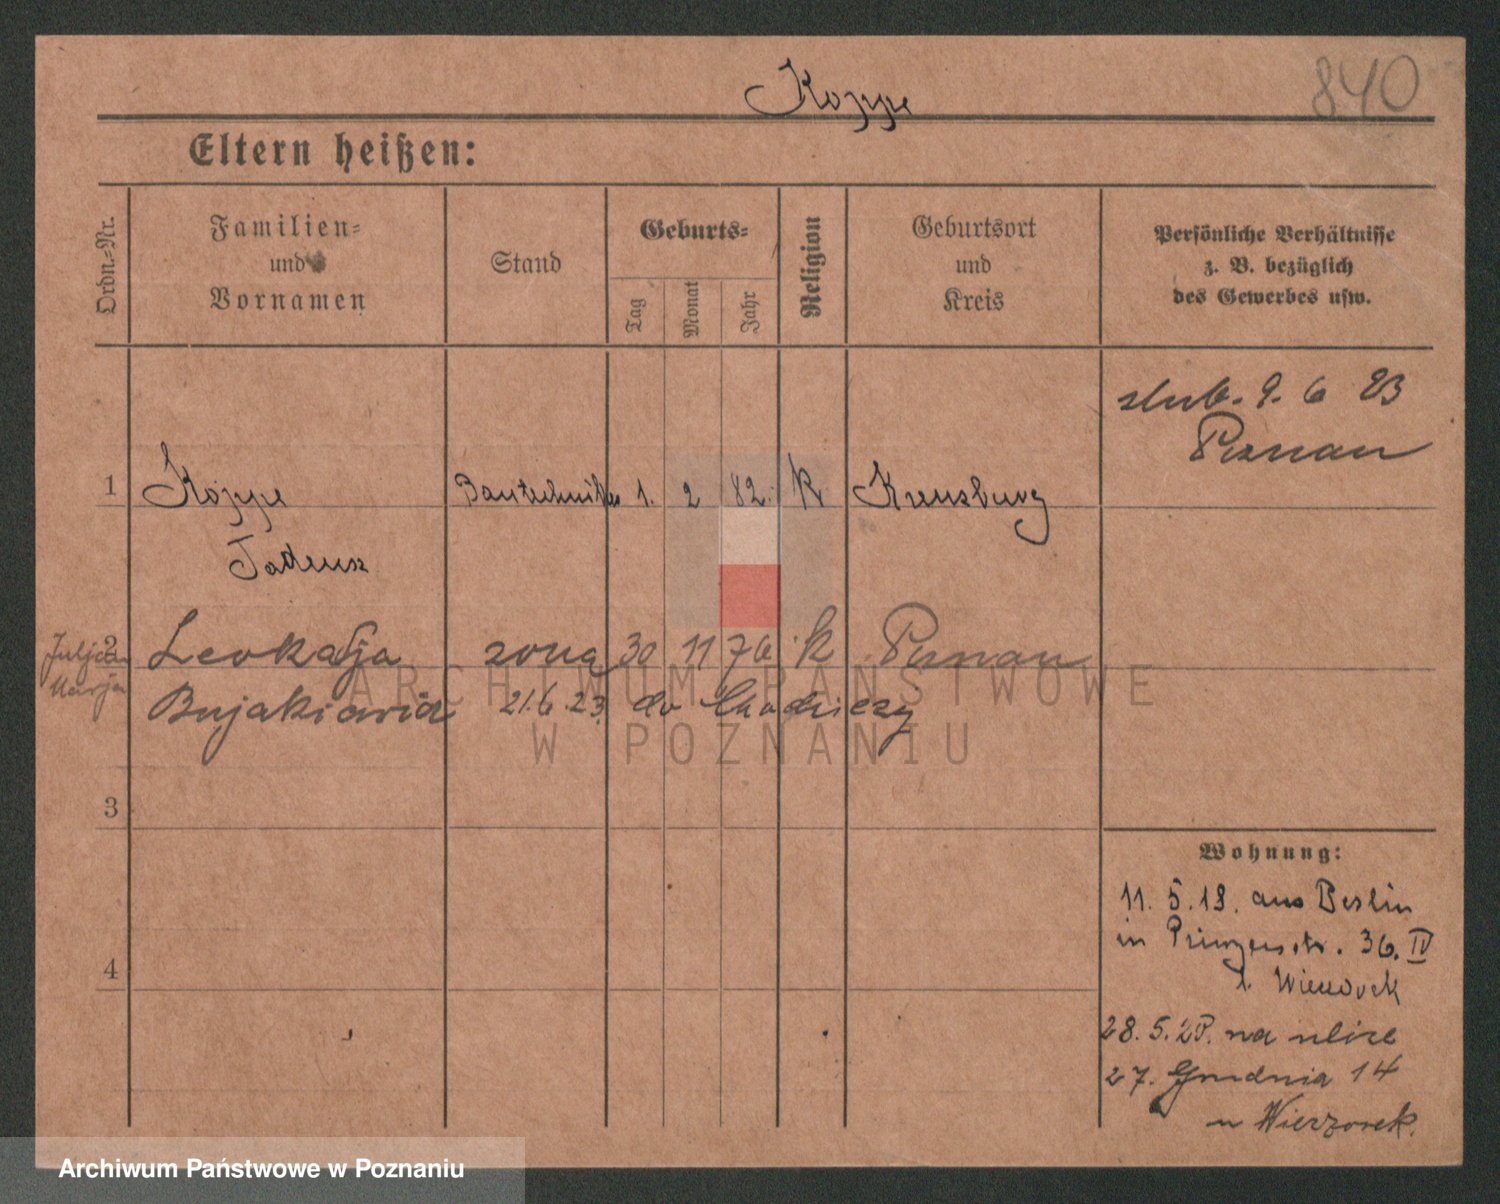 Koppe
840
Eltern heißen:
Ordn.-Nr.
Familien-
und
Vornamen
Stand
Geburts-
Tag
Monat
Jahr
Religion
Geburtsort
und
Kreis
Persönliche Verhältnisse
z. B. bezüglich
des Gewerbes usw.
ślub. 9. 6 23
Poznań
1 Koppe Bautechniker 1. 2 82. K Kreuzburg
Tadeusz
Julja
Marja
2 Leokadja żona 30 11 76 k Poznań
Bujakiewicz 21.6.23. do Chodzieży
3
4
Wohnung:
11. 5. 18. aus Berlin
in Prinzenstr. 36. IV
Wieczorek
28. 5. 20. na ulice
27. Grudnia 14
u Wieczorek.
ARCHIWUM PAŃSTWOWE
W POZNANIU
Archiwum Państwowe w Poznaniu